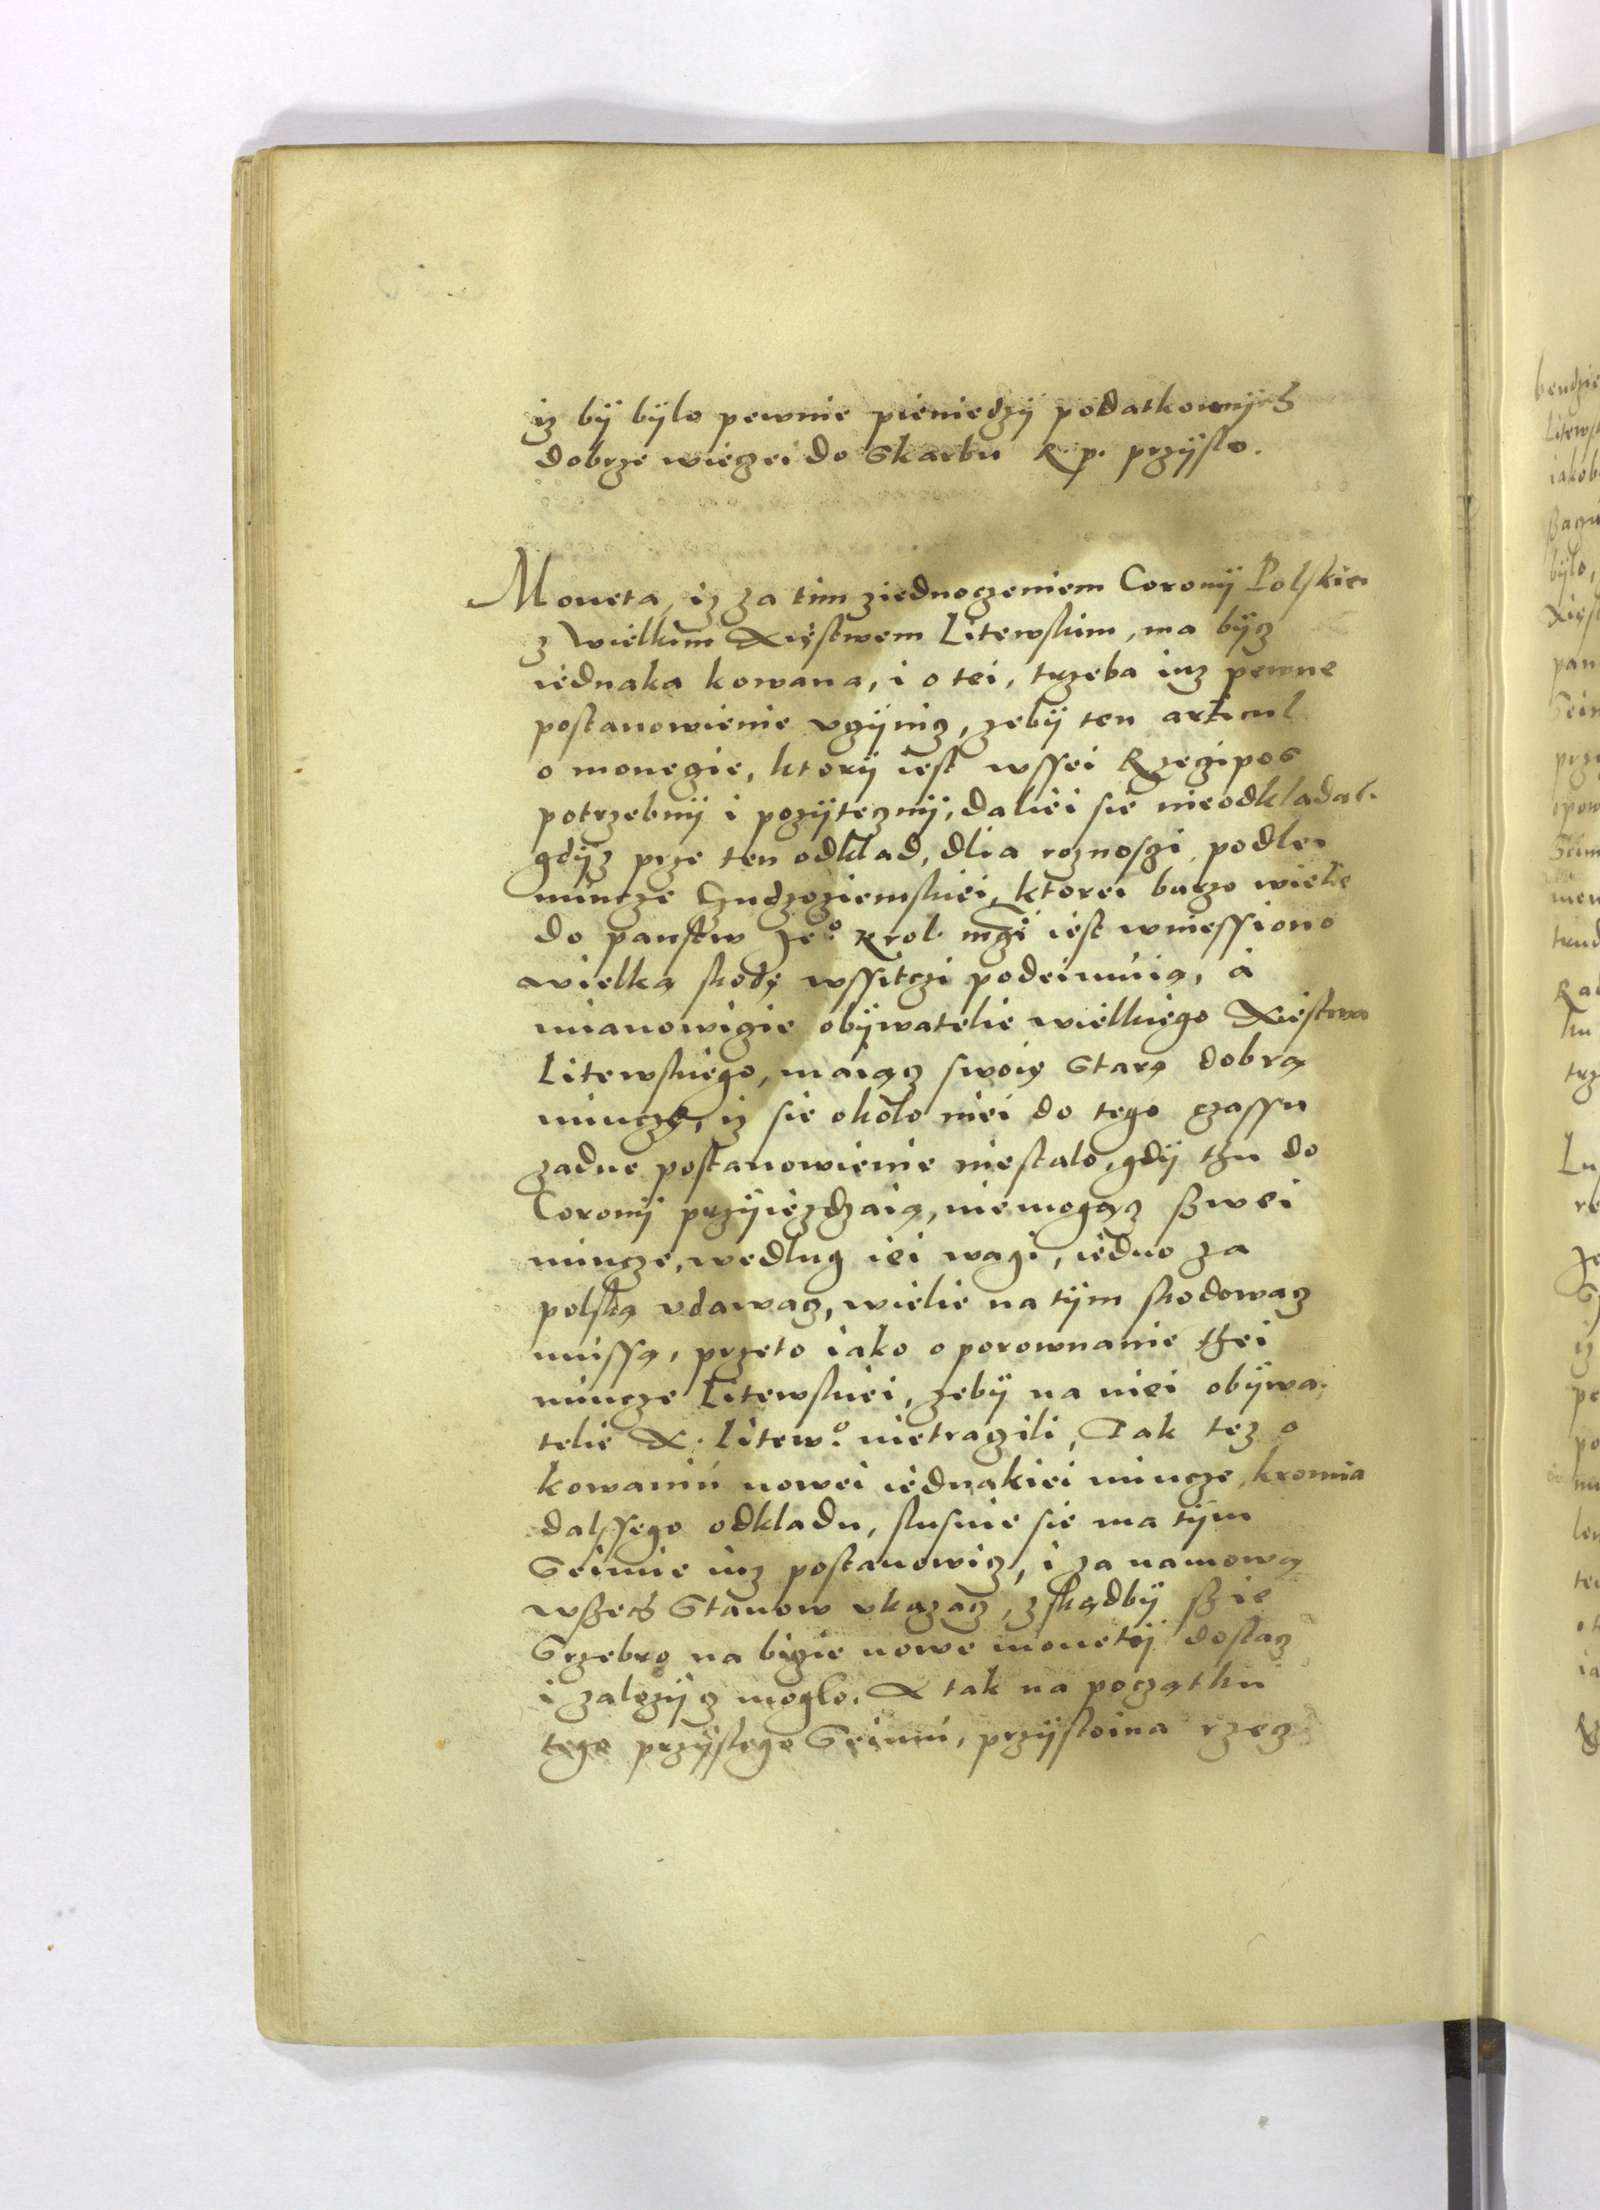 iz bÿ bÿlo pewnie pieniedzÿ podatkownÿch
dobrze wieczei do Skarbu R. p. przÿslo.
Moneta, iz za tim ziednoczeniem Coronÿ Polskiei
z Wielkim Xięstwem Litewskim, ma bÿcz
iednaka kowana, i o tei, trzeba iuz pewne
postanowienie vczÿnicz, zebÿ ten articul
o monecie, ktorÿ iest wssei Rzeczipos
potrzebnÿ i pozÿtecznÿ, daliei sie nieodkladal.
gdÿz prze ten odklad, dlia roznosczi podlei
mincze Czudzoziemskiei, ktorei barzo wielie
do panstw Jeo. Krol. mczi iest wniessiono
wielką skodę wssitczi podeimuią, a
mianowicie obÿwatelie wielkiego Xięstwa
Litewskiego, maiącz swoię Starą dobrą
minczę, iz sie około niei do tego czassu
zadne postanowienie niestalo, gdÿ thu do
Coronÿ przÿiezdzaią, niemogącz swei
mincze, wedlug iei wagi, iedno za
polską vdawacz, wielie na tÿm skodowacz
mussą, przeto iako o porownanie thei
mincze Litewskiei, zebÿ na niei obÿwa,
telie X. Litewo. nietraczili, Tak tez o
kowaniu nowei iednakiei mincze, kromia
dalssego odkladu, slusnie sie na tÿm
Seimie iuz postanowicz, i za namową
wszech Stanow vkazacz, zkądbÿ szie
Srzebro na bicie nowe monetÿ dostacz
i zalozÿcz moglo. A tak na początku
tego przÿslego Seimu, przÿstoina rzecz
bendzie
Litews
iakob
bÿlo,
Xięst
pan
Seim
prze
trz
iz
po